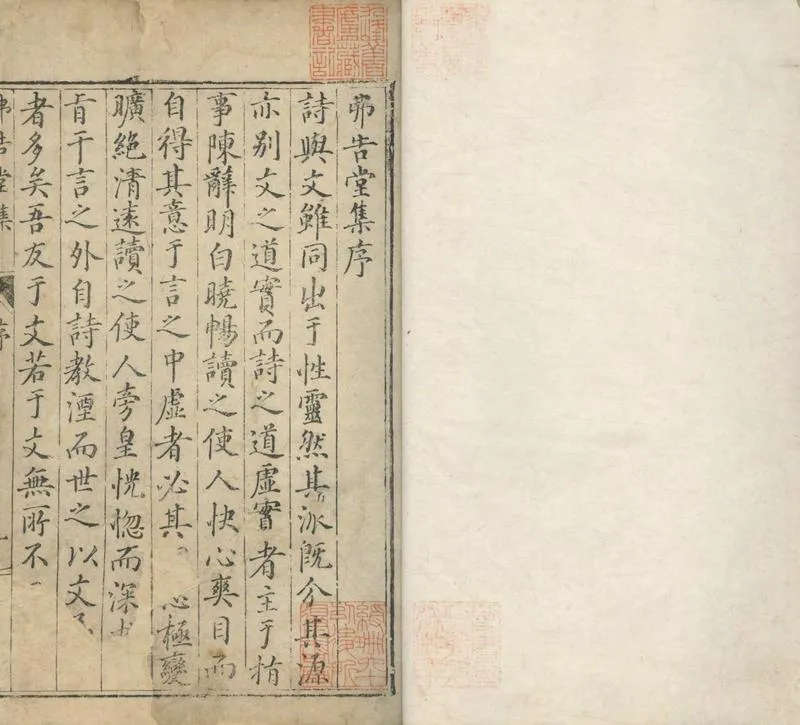 弗告堂集序
詩與文雖同出于性靈然其派既分其源
亦别文之道實而詩之道虛實者主于指
事陳辭明白曉暢讀之使人快心爽目而
自得其意于言之中虛者必其心極變
曠絶清遠讀之使人旁皇恍惚而深
旨于言之外自詩教湮而世之以文
者多矣吾友于文若于文無所不
弗告堂集 序